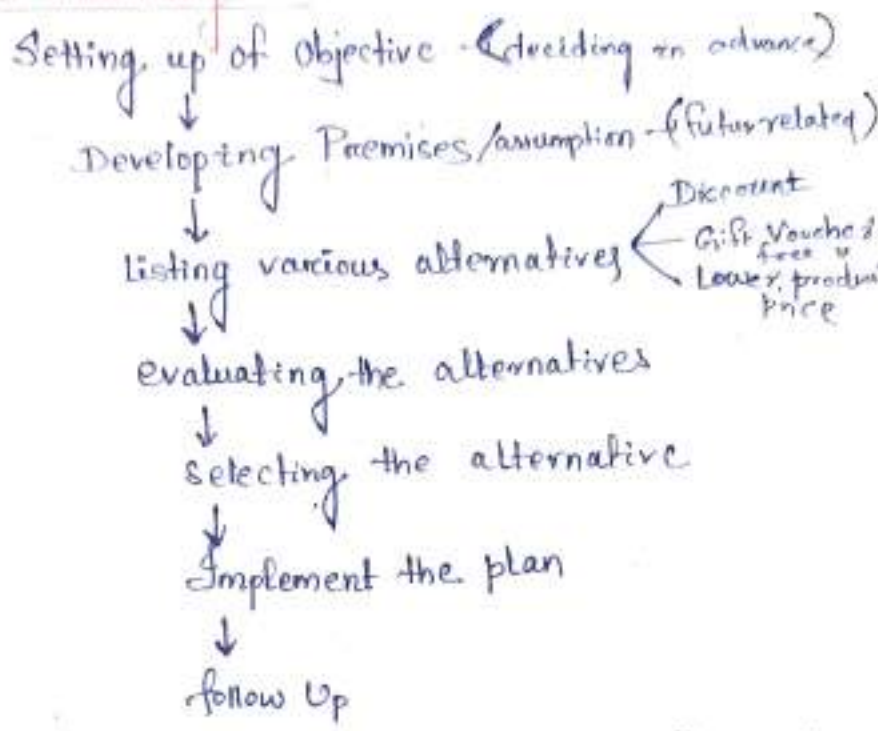 Setting up of Objective - (deciding in advance)
↓
Developing Premises/assumption - (futur related)
↓
Discount
Listing various alternatives
Gift Voucher
free
Lower produ
price
↓
evaluating the alternatives
↓
selecting the alternative
↓
Implement the plan
↓
follow Up